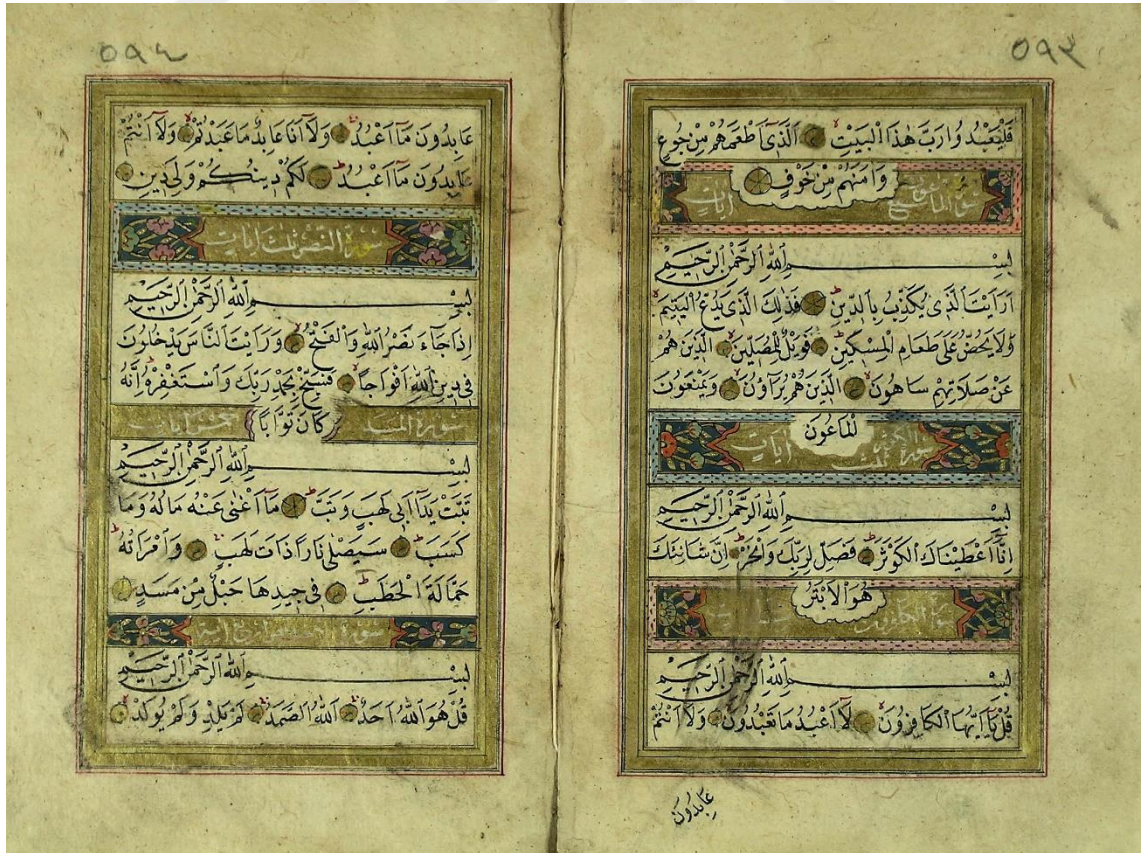 ٥٩٣
فَلْيَعْبُدُوا رَبَّ هٰذَا الْبَيْتِ الَّذِىٓ اَطْعَمَهُمْ مِنْ جُوعٍ
وَاٰمَنَهُمْ مِنْ خَوْفٍ
سورة الماعون آيات
بِسْمِ اللّٰهِ الرَّحْمٰنِ الرَّحِيمِ
اَرَاَيْتَ الَّذِى يُكَذِّبُ بِالدِّينِ فَذٰلِكَ الَّذِى يَدُعُّ الْيَتِيمَ
وَلَا يَحُضُّ عَلٰى طَعَامِ الْمِسْكِينِ فَوَيْلٌ لِلْمُصَلِّينَ الَّذِينَ هُمْ
عَنْ صَلَاتِهِمْ سَاهُونَ الَّذِينَ هُمْ يُرَآؤُنَ وَيَمْنَعُونَ
الْمَاعُونَ
سورة الكوثر آيات
بِسْمِ اللّٰهِ الرَّحْمٰنِ الرَّحِيمِ
اِنَّآ اَعْطَيْنَاكَ الْكَوْثَرَ فَصَلِّ لِرَبِّكَ وَانْحَرْ اِنَّ شَانِئَكَ
هُوَ الْاَبْتَرُ
سورة الكافرون
بِسْمِ اللّٰهِ الرَّحْمٰنِ الرَّحِيمِ
قُلْ يَآ اَيُّهَا الْكَافِرُونَ لَآ اَعْبُدُ مَا تَعْبُدُونَ وَلَآ اَنْتُمْ
عَابِدُونَ
٥٩٤
عَابِدُونَ مَآ اَعْبُدُ وَلَآ اَنَا عَابِدٌ مَا عَبَدْتُمْ وَلَآ اَنْتُمْ
عَابِدُونَ مَآ اَعْبُدُ لَكُمْ دِينُكُمْ وَلِىَ دِينِ
سورة النصر ثلث ايات
بِسْمِ اللّٰهِ الرَّحْمٰنِ الرَّحِيمِ
اِذَا جَآءَ نَصْرُ اللّٰهِ وَالْفَتْحُ وَرَاَيْتَ النَّاسَ يَدْخُلُونَ
فِى دِينِ اللّٰهِ اَفْوَاجًا فَسَبِّحْ بِحَمْدِ رَبِّكَ وَاسْتَغْفِرْهُ اِنَّهُ
كَانَ تَوَّابًا
سورة المسد خمس ايات
بِسْمِ اللّٰهِ الرَّحْمٰنِ الرَّحِيمِ
تَبَّتْ يَدَآ اَبِى لَهَبٍ وَتَبَّ مَآ اَغْنٰى عَنْهُ مَالُهُ وَمَا
كَسَبَ سَيَصْلٰى نَارًا ذَاتَ لَهَبٍ وَامْرَاَتُهُ
حَمَّالَةَ الْحَطَبِ فِى جِيدِهَا حَبْلٌ مِنْ مَسَدٍ
سورة
بِسْمِ اللّٰهِ الرَّحْمٰنِ الرَّحِيمِ
قُلْ هُوَ اللّٰهُ اَحَدٌ اَللّٰهُ الصَّمَدُ لَمْ يَلِدْ وَلَمْ يُولَدْ